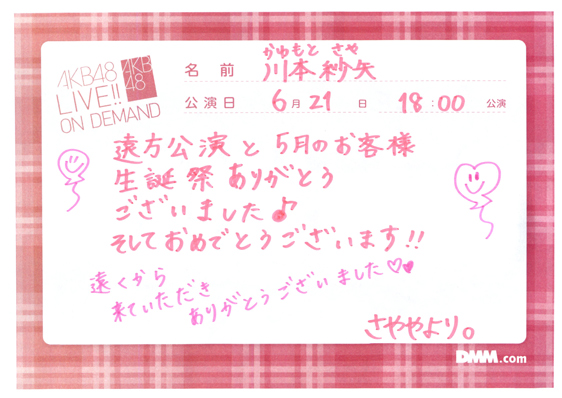 AKB48
LIVE!!
ON DEMAND
AKB
48
かわもと さや
名前 川本紗矢
公演日 6月21日 18:00 公演
遠方公演と5月のお客様
生誕祭ありがとう
ございました♪
そしておめでとうございます!!
遠くから
来ていただき
ありがとうございました♡♥
さややより。
DMM.com